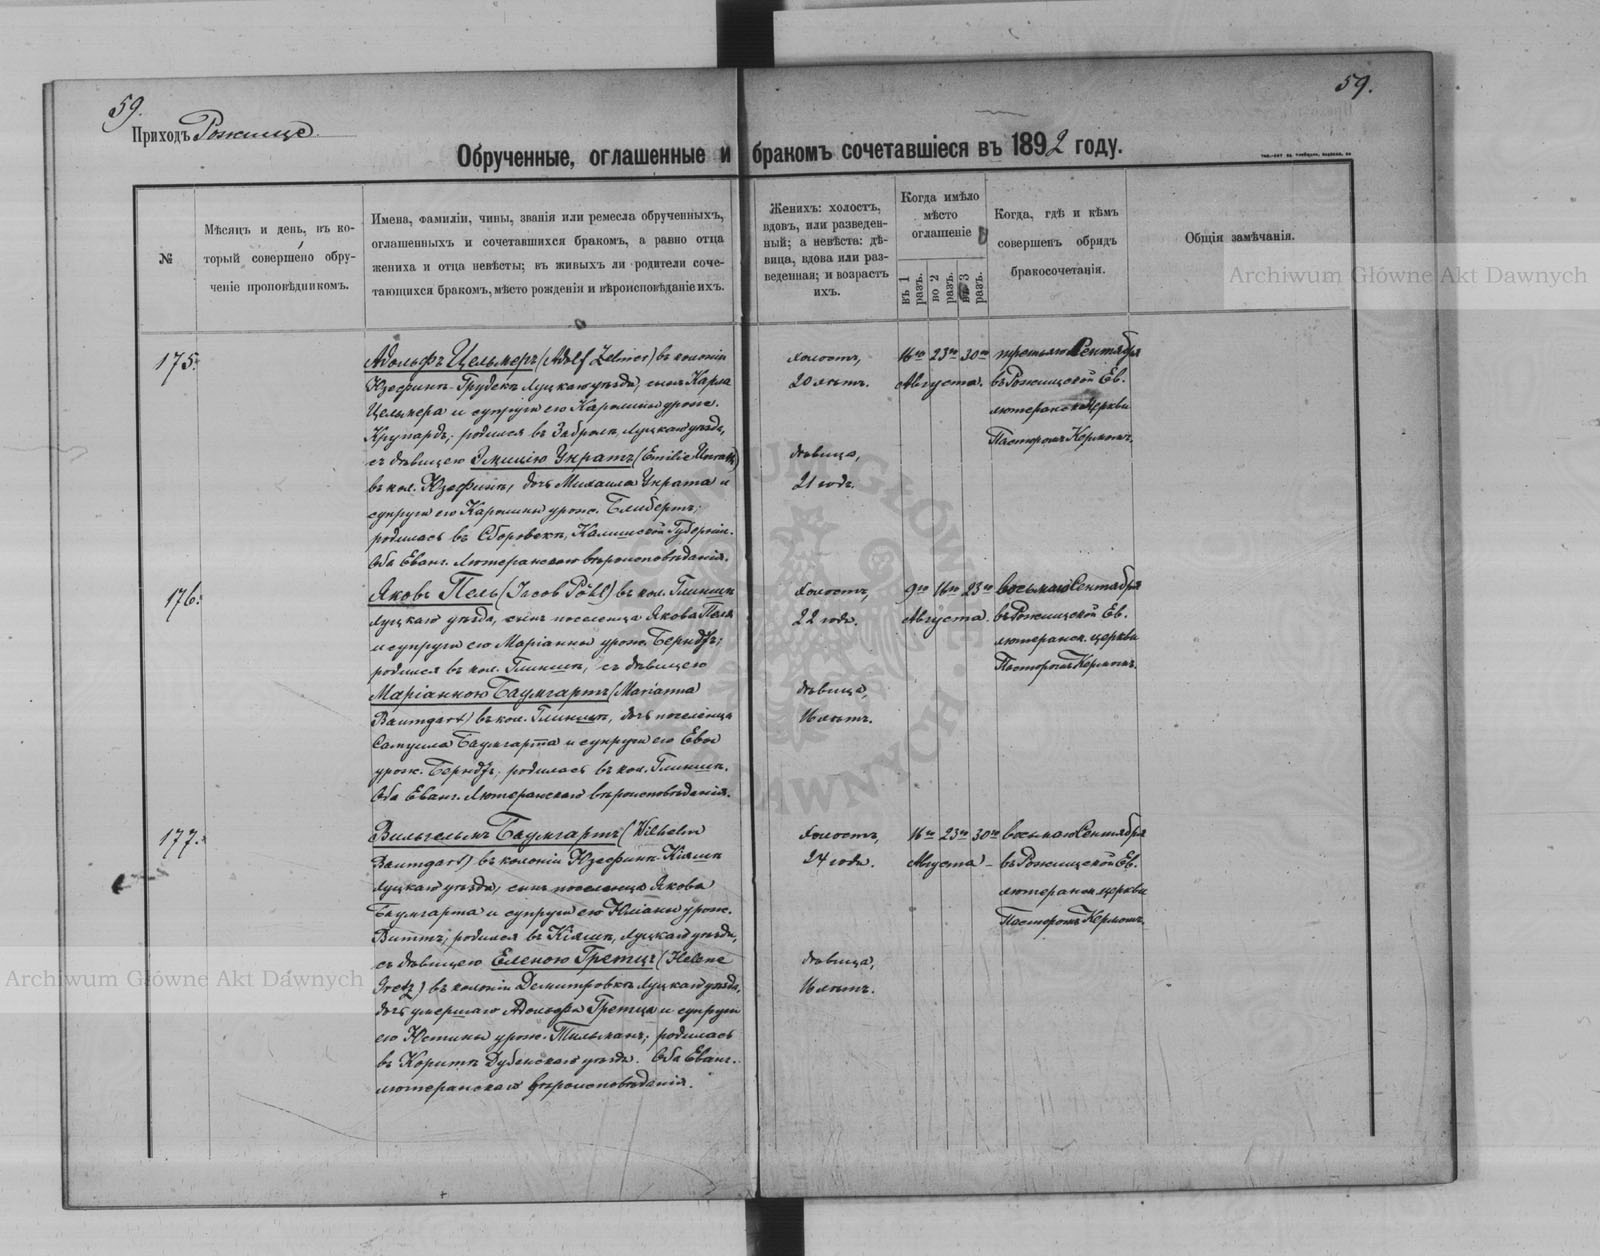 59.
59.
Приходъ Рожище
Обрученные, оглашенные и бракомъ сочетавшіеся въ 1892 году.
№
Мѣсяцъ и день, въ ко-
торый совершено обру-
ченіе проповѣдникомъ.
Имена, фамиліи, чины, званія или ремесла обрученныхъ,
оглашенныхъ и сочетавшихся бракомъ, а равно отца
жениха и отца невѣсты; въ живыхъ ли родители соче-
тающихся бракомъ, мѣсто рожденія и вѣроисповѣданіе ихъ.
Женихъ: холостъ,
вдовъ, или разведен-
ный; а невѣста: дѣ-
вица, вдова или раз-
веденная; и возрастъ
ихъ.
Когда имѣло
мѣсто
оглашеніе
въ 1 разъ.
во 2 разъ.
въ 3 разъ.
Когда, гдѣ и кѣмъ
совершенъ обрядъ
бракосочетанія.
Общія замѣчанія.
175.
Адольфъ Цельмеръ (Adolf Zelmer) въ колоніи
Юзефинѣ-Грудекъ Луцкаго уѣзда, сынъ Карла
Цельмера и супруги его Каролины урож.
родился въ Луцкаго уѣзда,
съ дѣвицею Эмиліею Укратъ (Emilie Unrath)
въ кол. Юзефинѣ, дочь Михаила Украта и
супруги его Каролины урож. Блибертъ;
родилась въ Сборовскъ, Калишской Губерніи.
Оба Еванг. Лютеранскаго вѣроисповѣданія.
холостъ,
20 лѣтъ.
дѣвица,
21 года.
16го 23го 30го
Августа.
третьяго Сентября
въ Рожищской Ев.
лютеранск. церкви
Пасторомъ Кермомъ.
176.
Яковъ Пель (Jacob Pöhl) въ кол. Глиншѣ
Луцкаго уѣзда, сынъ поселенца Якова Пеля
и супруги его Маріанны урож. Берндтъ;
родился въ кол. Глиншѣ, съ дѣвицею
Маріанною Баумгартъ (Marianna
Baumgart) въ кол. Глиншѣ, дочь поселенца
Самуила Баумгарта и супруги его Евы
урож. Берндтъ, родилась въ кол. Глиншѣ.
Оба Еванг. Лютеранскаго вѣроисповѣданія.
холостъ,
22 года.
дѣвица,
16 лѣтъ.
9го 16го 23го
Августа.
восьмаго Сентября
въ Рожищской Ев.
лютеранск. церкви
Пасторомъ Кермомъ.
177.
Вильгельмъ Баумгартъ (Wilhelm
Baumgart) въ колоніи Юзефинъ-Кіяшъ
Луцкаго уѣзда, сынъ поселенца Якова
Баумгарта и супруги его Юліаны урож.
Виттъ; родился въ Кіяшѣ, Луцкаго уѣзда,
съ дѣвицею Еленою Гретцъ (Helene
Gretz) въ колоніи Демитровкѣ Луцкаго уѣзда,
дочь умершаго Адольфа Гретца и супруги
его Юстины урож. Тильманъ; родилась
въ Корытѣ Дубенскаго уѣзда. Оба Еванг.-
лютеранскаго вѣроисповѣданія.
холостъ,
24 года.
дѣвица,
16 лѣтъ.
16го 23го 30го
Августа
восьмаго Сентября
въ Рожищской Ев.
лютеранск. церкви
Пасторомъ Кермомъ.
Archiwum Główne Akt Dawnych
Archiwum Główne Akt Dawnych